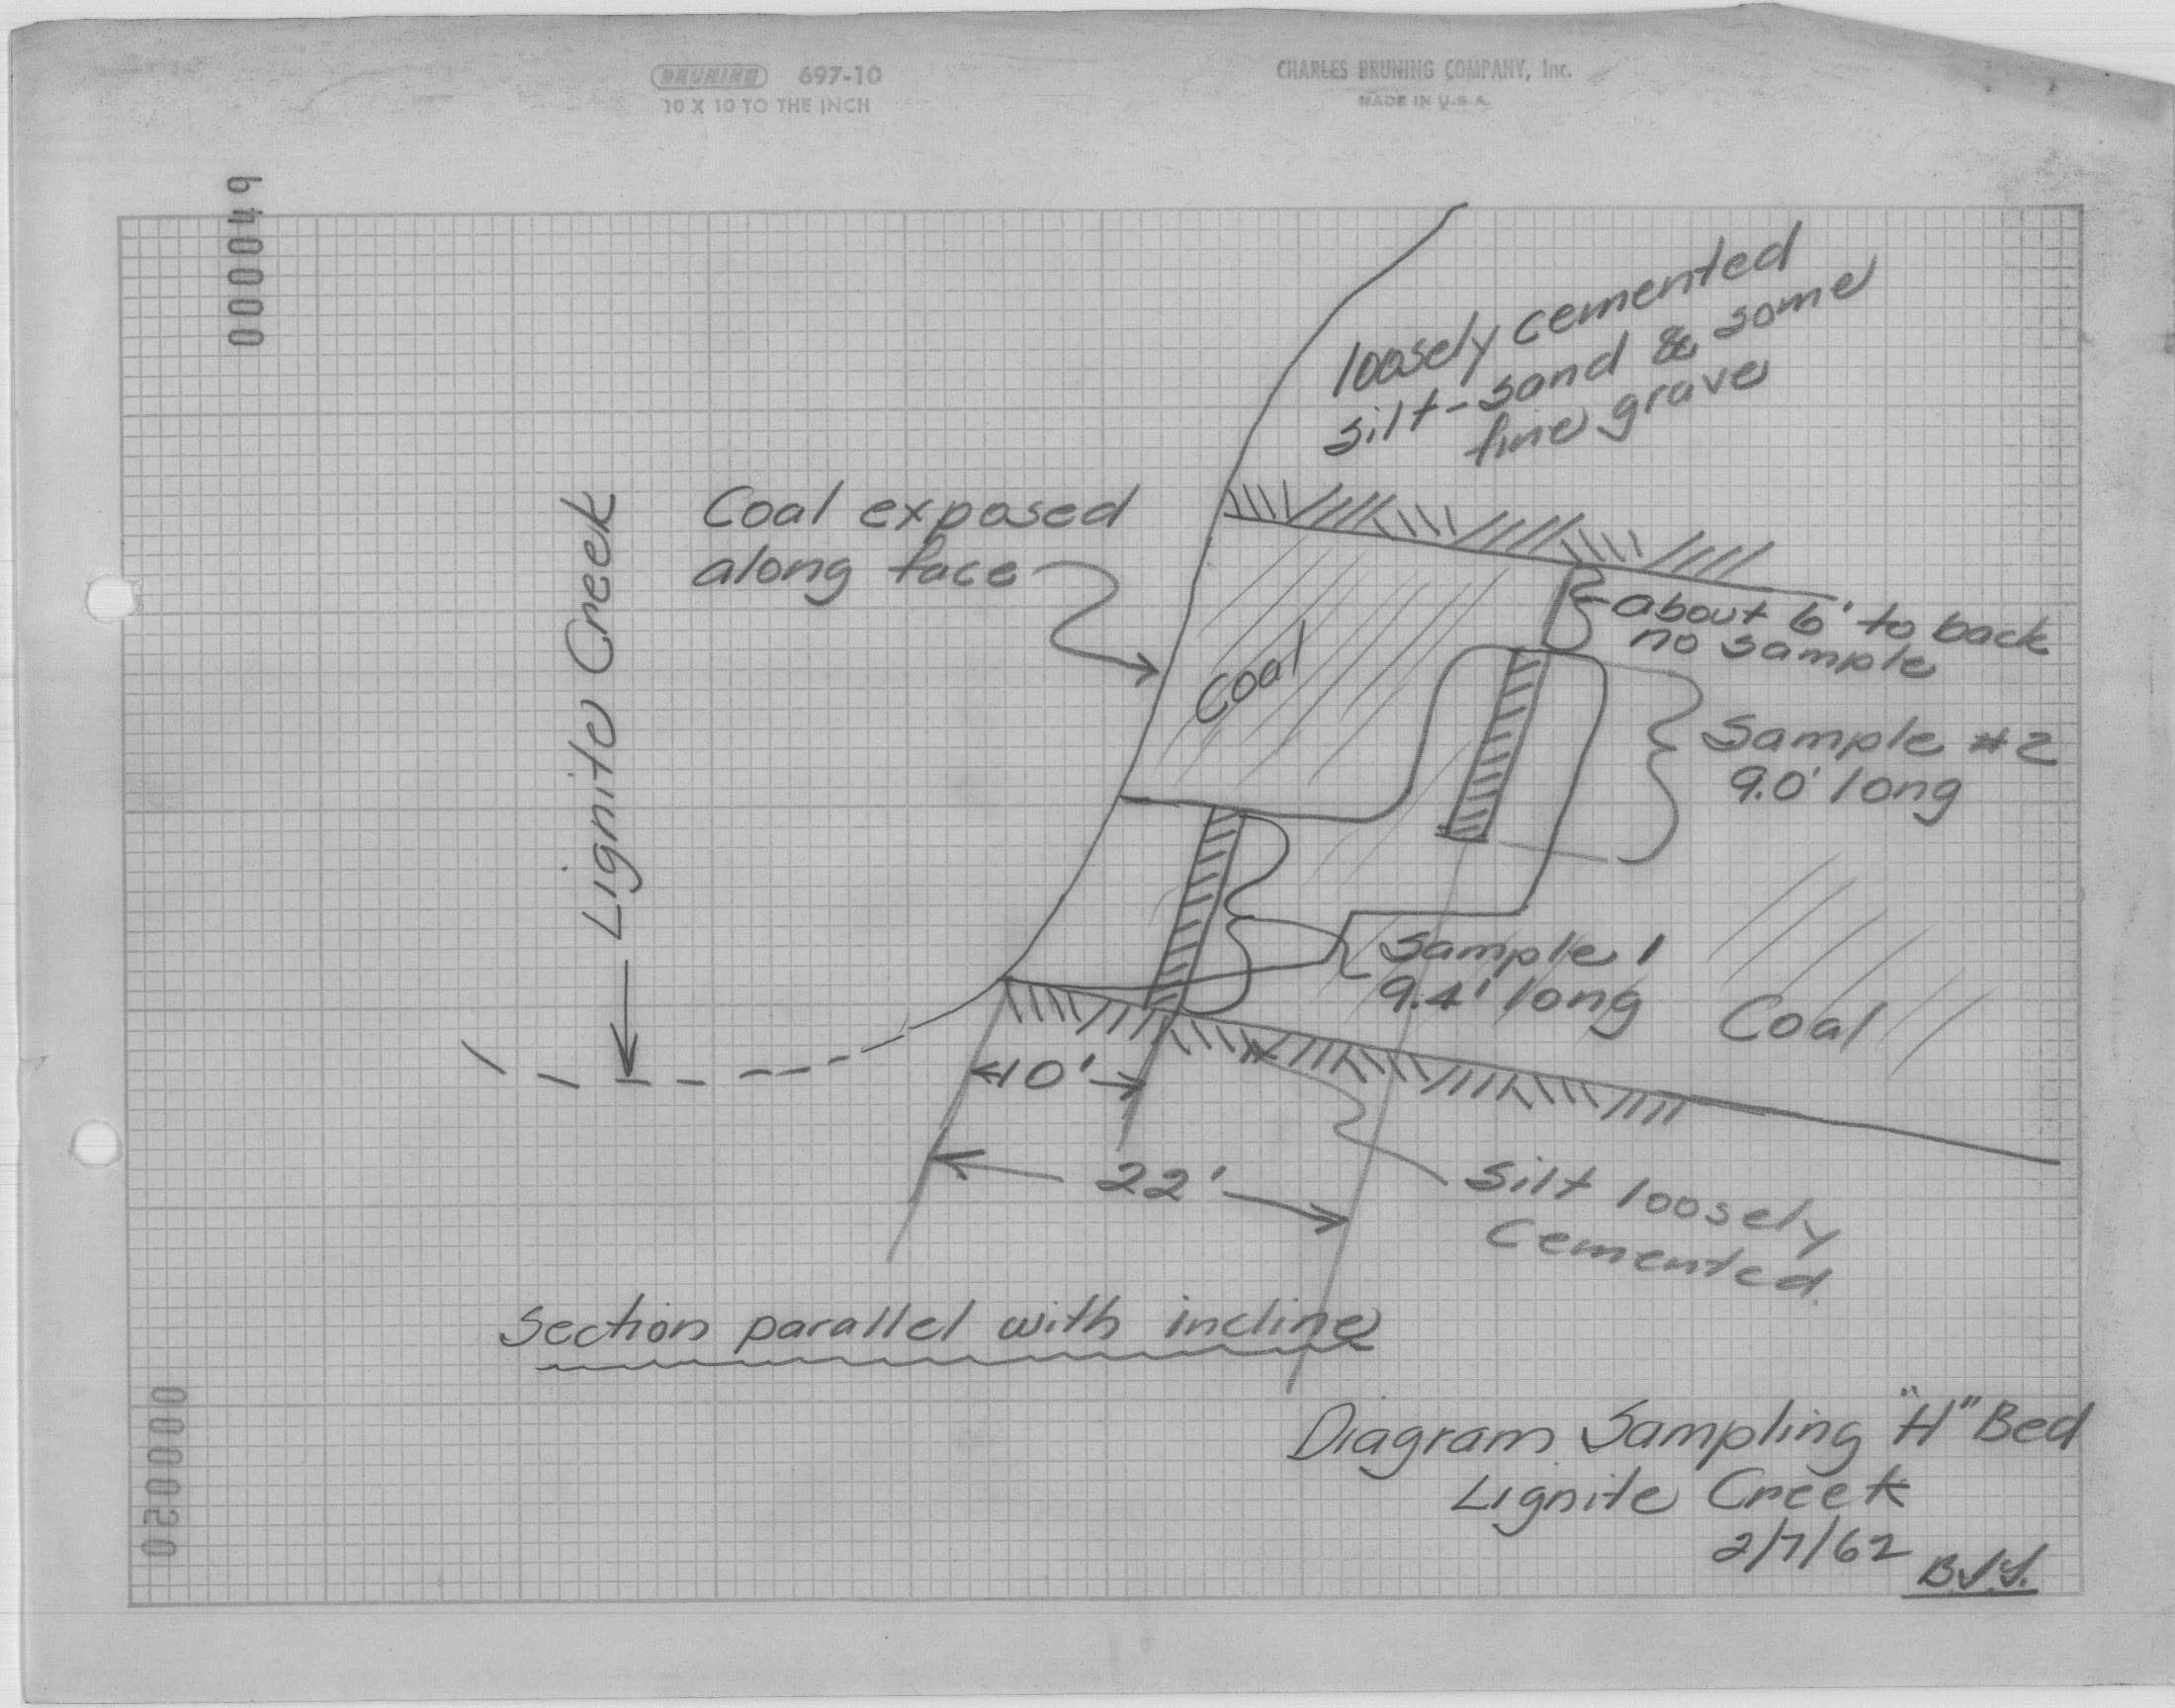 BRUNING 697-10
10 X 10 TO THE INCH
CHARLES BRUNING COMPANY, Inc.
MADE IN U.S.A.
000049
loosely cemented
silt-sand & some
fine grave
Coal exposed
along face
Lignite Creek
Coal
about 6' to back
no sample
Sample #2
9.0' long
Sample 1
9.4' long
Coal
10'
22'
Silt loosely
Cemented
Section parallel with incline
Diagram Sampling "H" Bed
Lignite Creek
2/7/62
000050